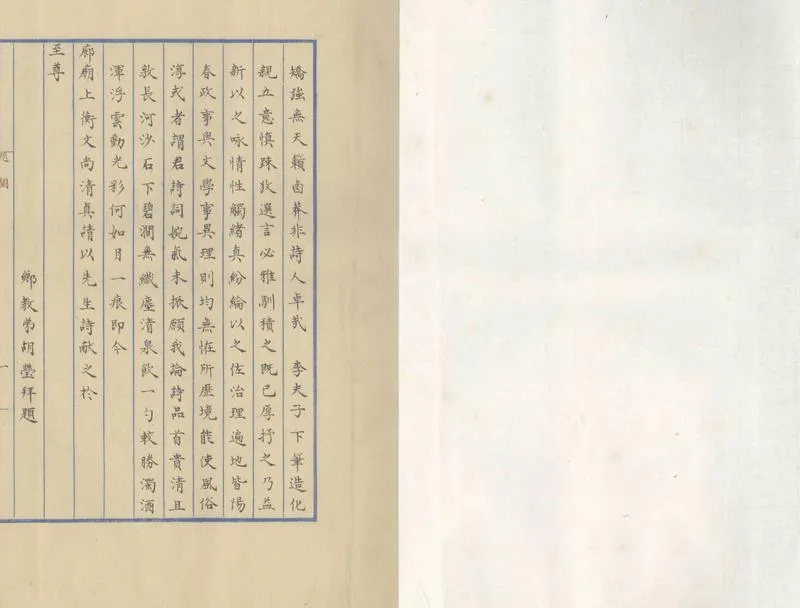 矯強無天籟鹵莽非詩人卓哉　李夫子下筆造化
親立意慎踈狄選言必雅馴積之既已厚抒之乃益
新以之咏情性觸緒真紛綸以之佐治理遍地皆陽
春政事與文學事異理則均無恠所歷境能使風俗
淳或者謂君詩詞婉氣未振願我論詩品首貴清且
敦長河沙石下碧澗無纖塵清泉飲一勺較勝濁酒
渾浮雲動光彩何如月一痕即今
廊廟上衡文尚清真請以先生詩献之於
至尊
鄉教弟胡瑩拜題